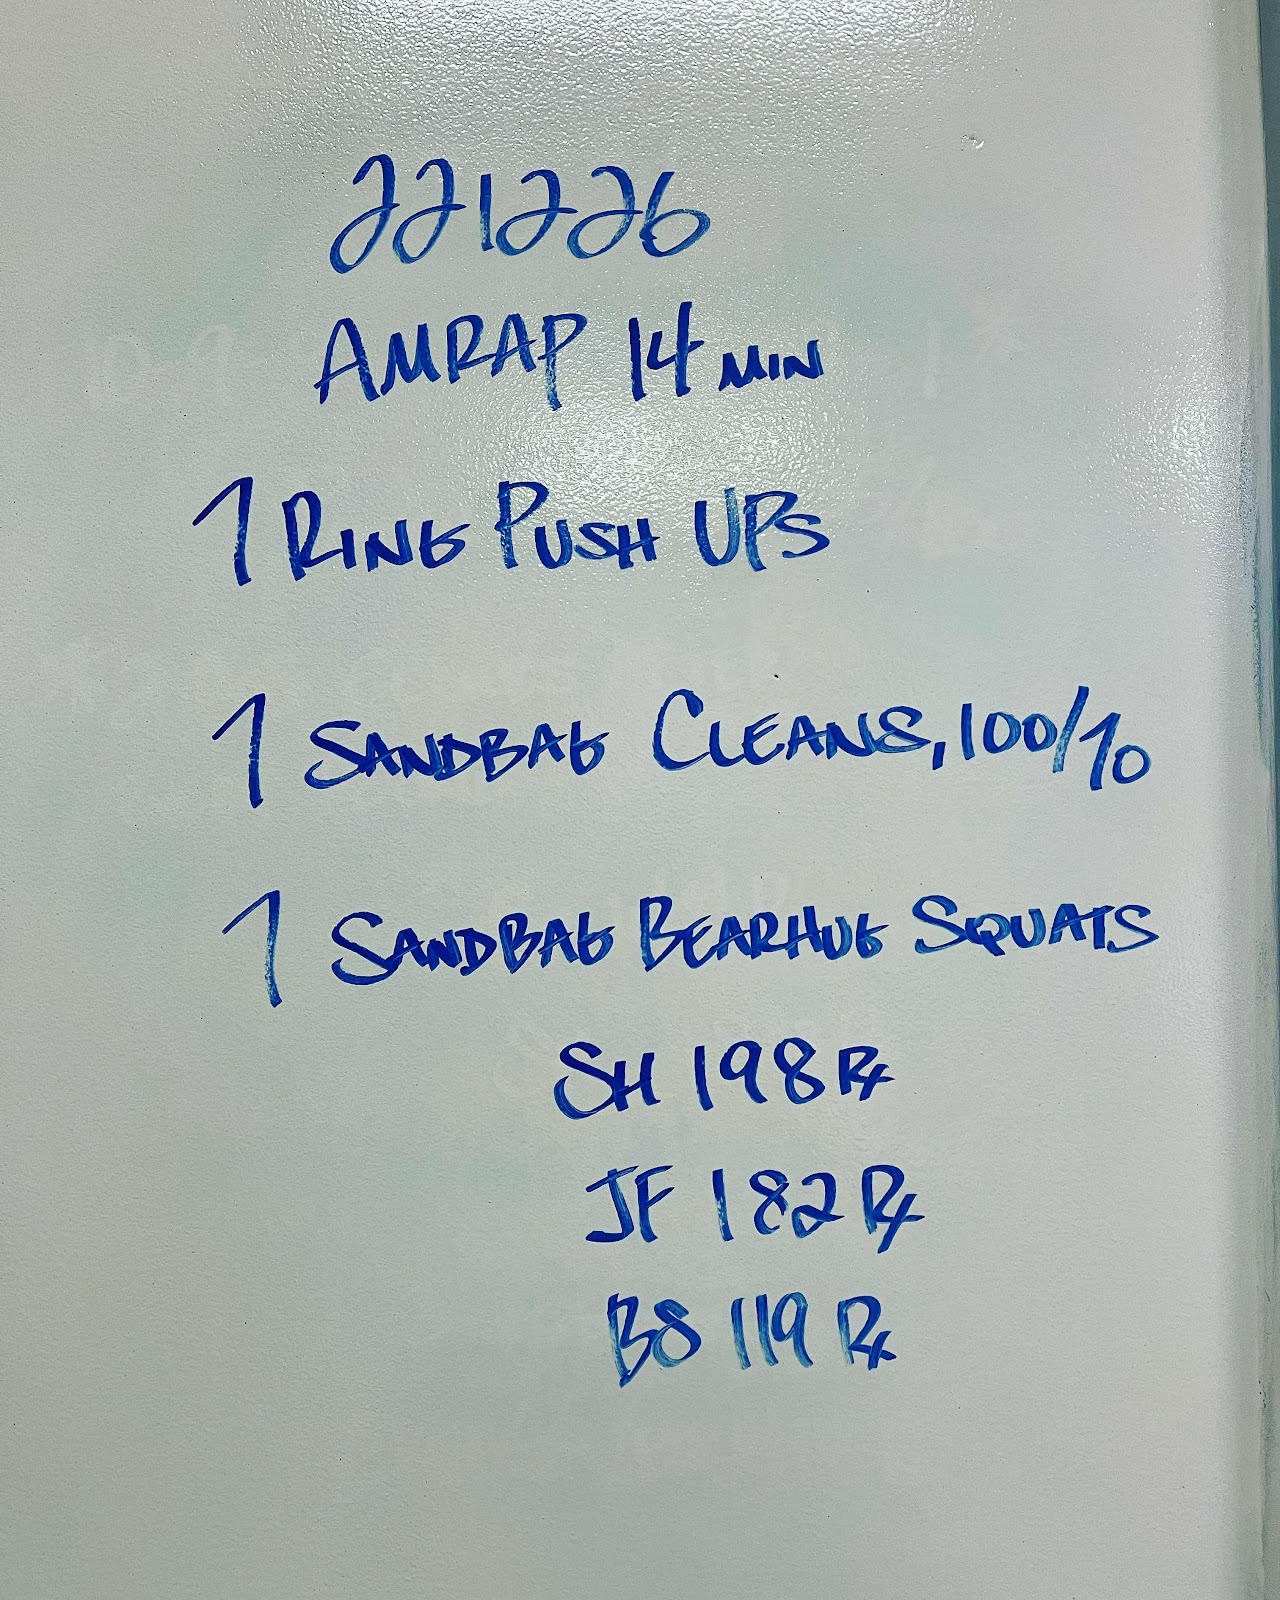 221226
AMRAP 14 MIN
7 RING PUSH UPS
7 SANDBAG CLEANS, 100/70
7 SANDBAG BEARHUG SQUATS
SH 198 Rx
JF 182 Rx
BS 119 Rx